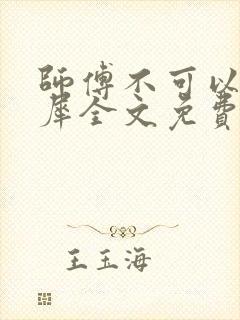 師傅不可以
犀全文免費
王玉海